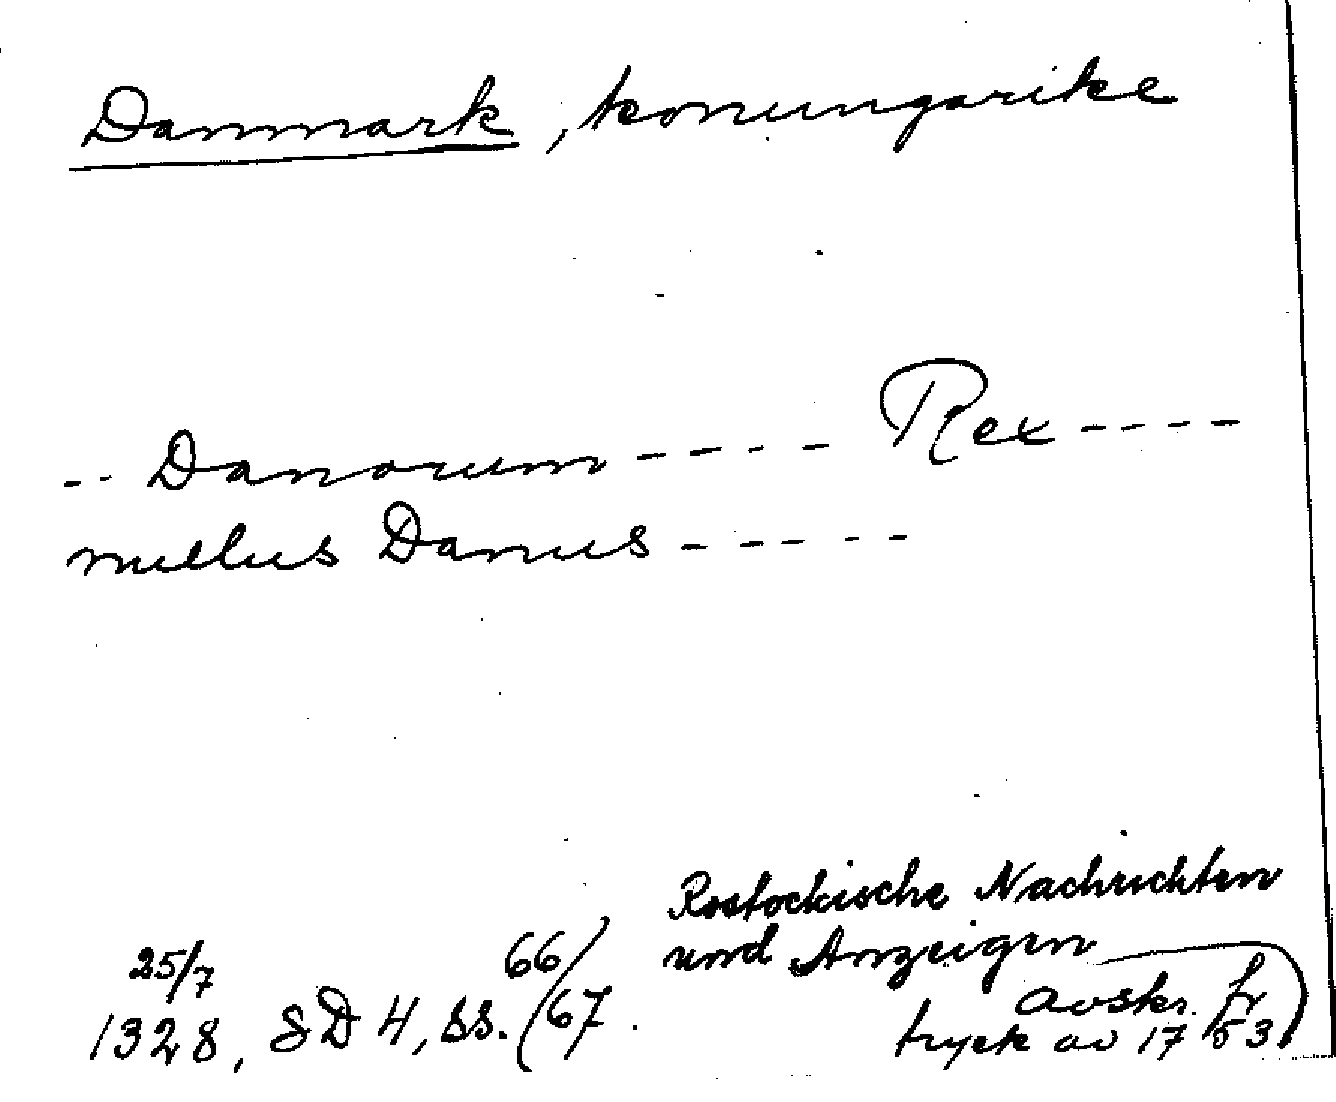 Danmark, konungarike
-- Danorum ---- Rex ----
nullus Danus -----
Rostockische Nachrichten
und Anzeigen
25/7 1328, SD 4, ss. 66/67.
avskr. fr
tryck av 1753)